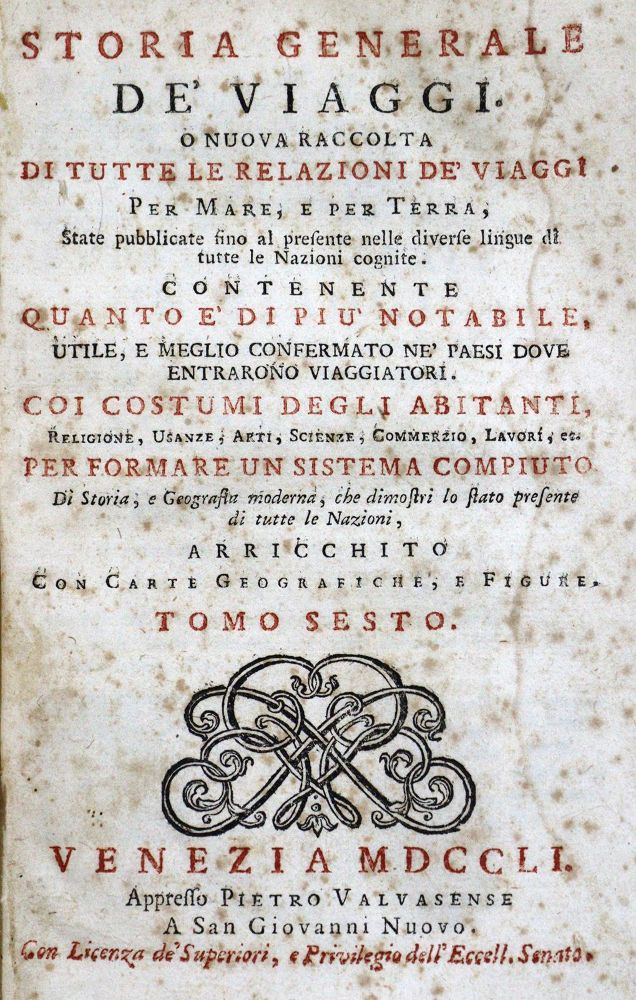 STORIA GENERALE
DE' VIAGGI.
O NUOVA RACCOLTA
DI TUTTE LE RELAZIONI DE' VIAGGI
PER MARE, E PER TERRA,
State pubblicate fino al presente nelle diverse lingue di
tutte le Nazioni cognite.
CONTENENTE
QUANTO E' DI PIU' NOTABILE,
UTILE, E MEGLIO CONFERMATO NE' PAESI DOVE
ENTRARONO VIAGGIATORI.
COI COSTUMI DEGLI ABITANTI,
RELIGIONE, USANZE, ARTI, SCIENZE, COMMERZIO, LAVORI, ec.
PER FORMARE UN SISTEMA COMPIUTO
Di Storia, e Geografia moderna, che dimostri lo stato presente
di tutte le Nazioni,
ARRICCHITO
CON CARTE GEOGRAFICHE, E FIGURE.
TOMO SESTO.
VENEZIA MDCCLI.
Appresso PIETRO VALVASENSE
A San Giovanni Nuovo.
Con Licenza de' Superiori, e Privilegio dell' Eccell. Senato.